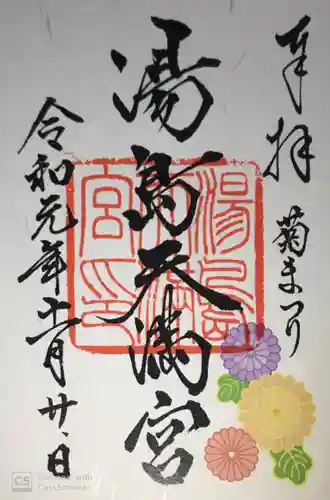 奉拝
菊まつり
湯島天満宮
湯島天満宮印
令和元年十一月廿日
CS Scanned with
CamScanner